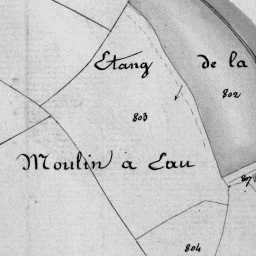 Etang de la
802
803
Moulin a Eau
804